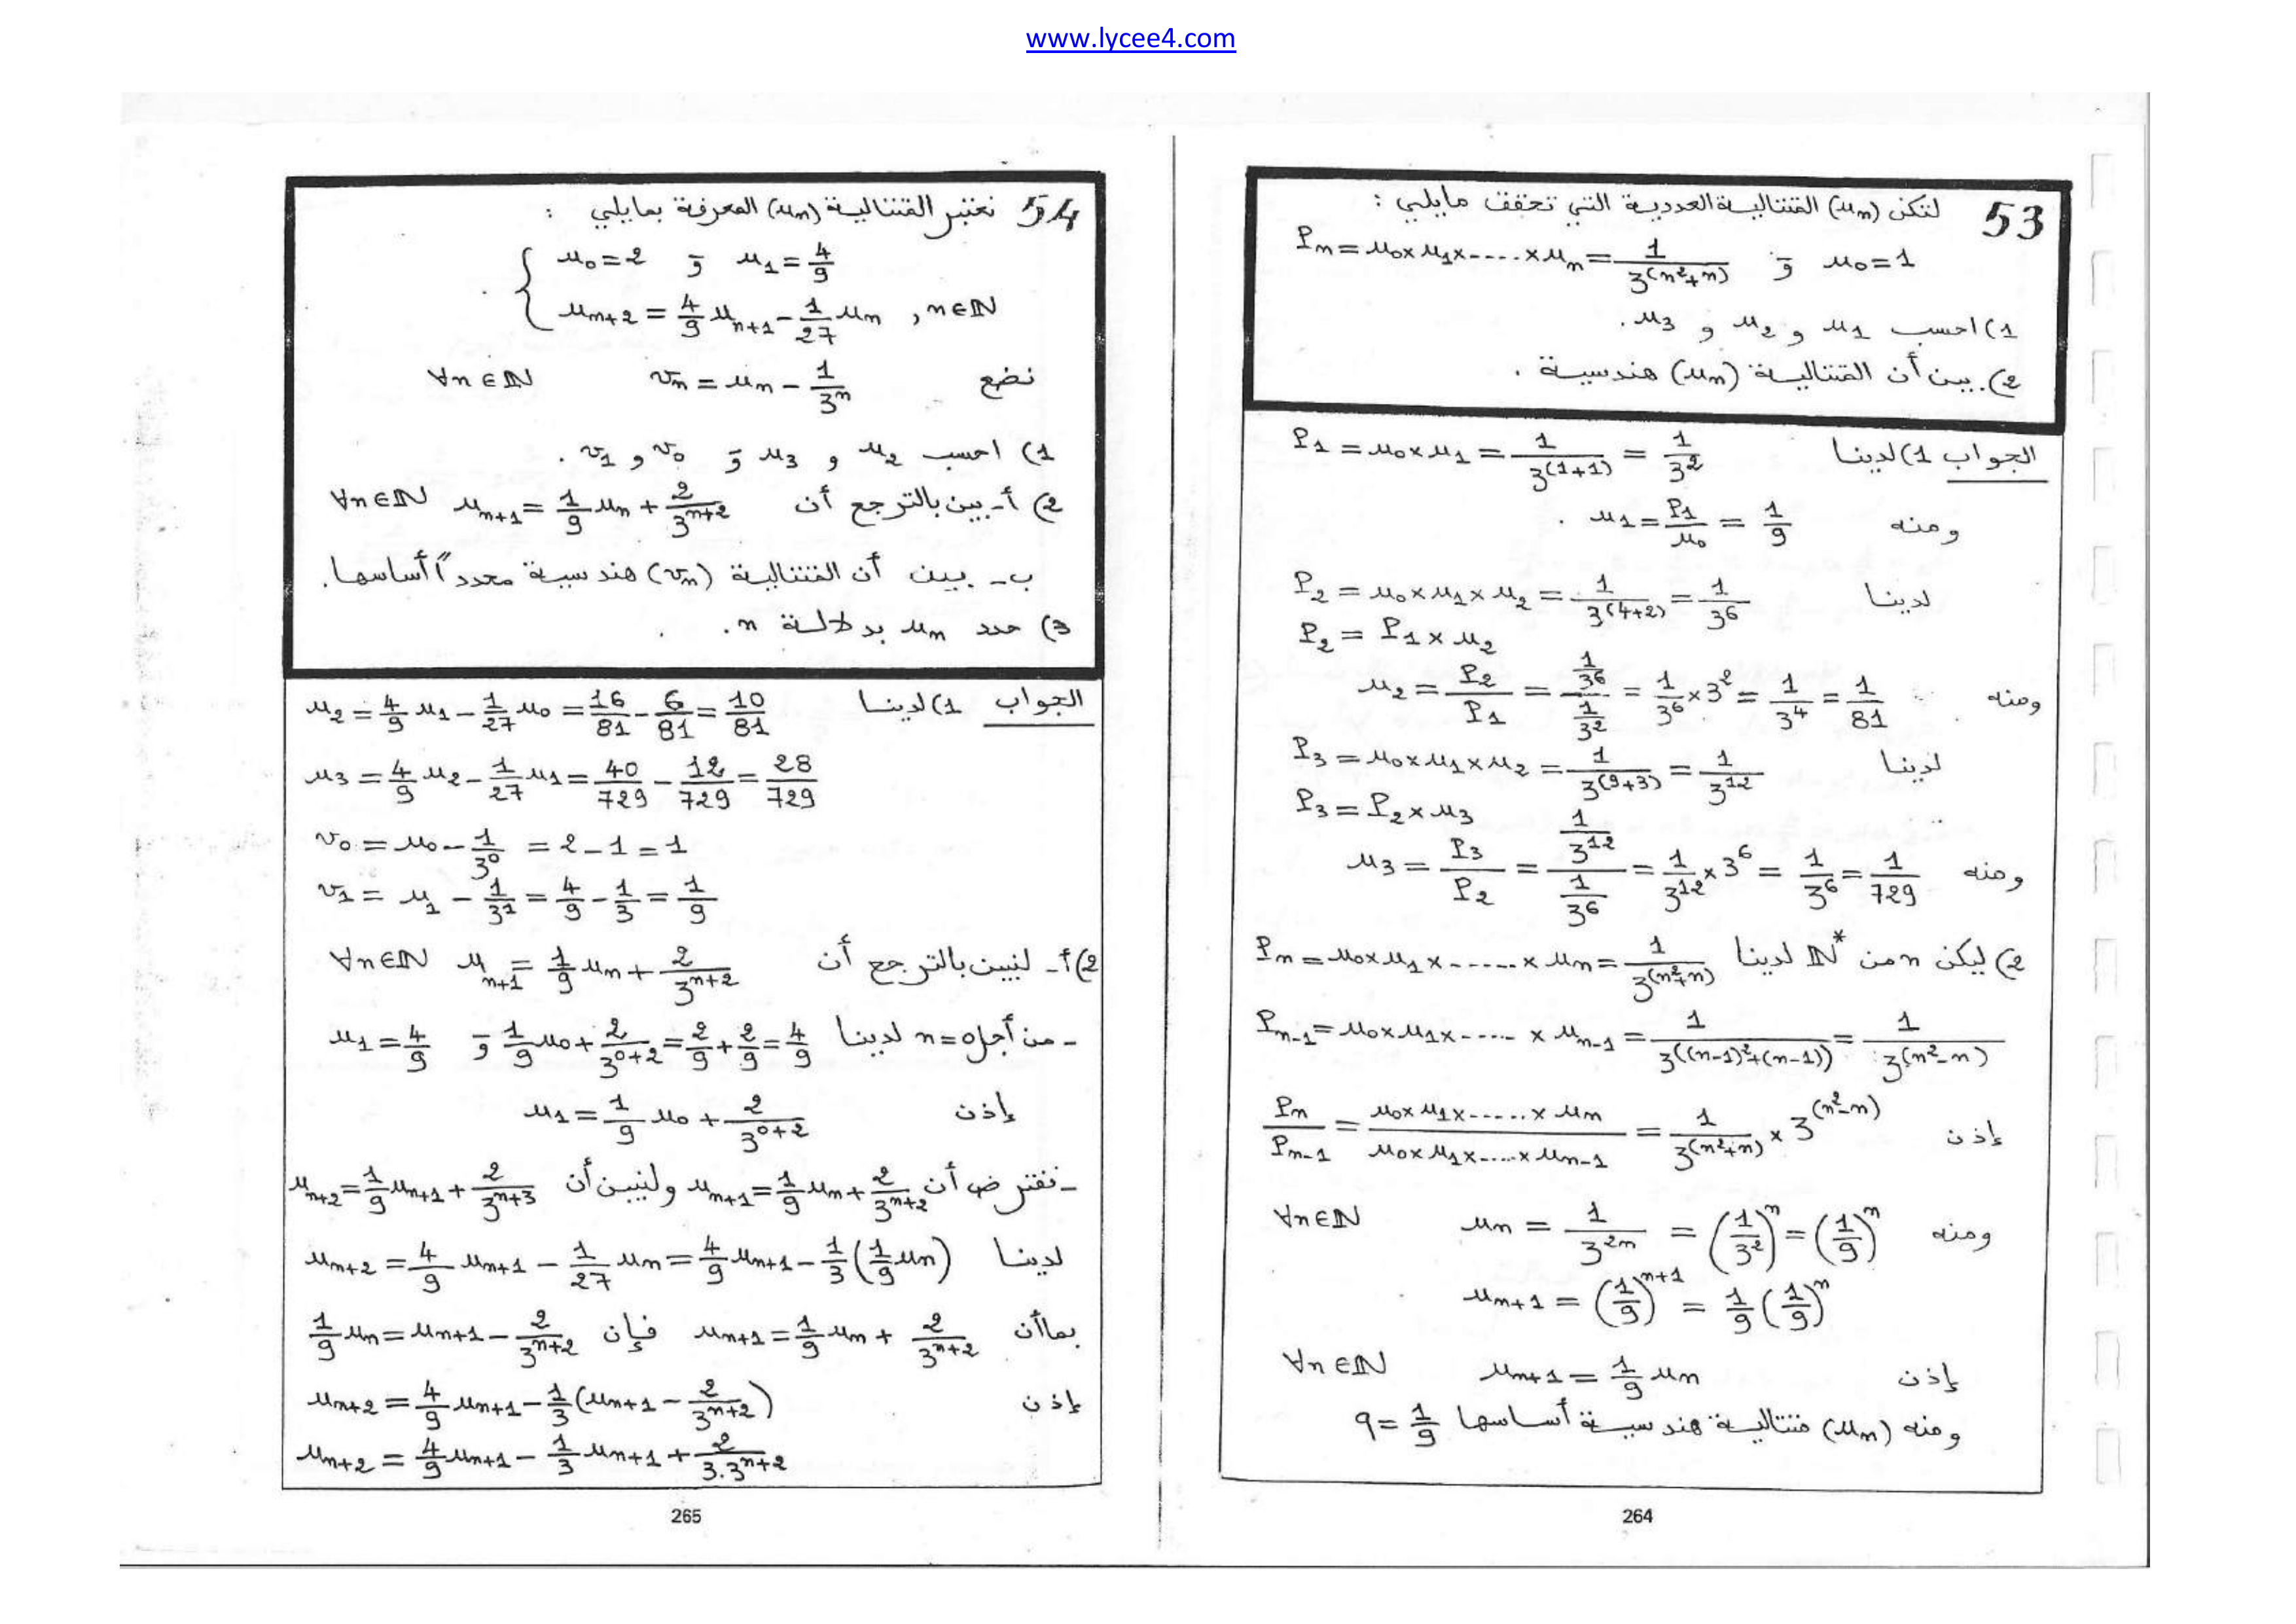 www.lycee4.com
53 لتكن (u_n) المتتالية العددية التي تحقق مايلي :
P_n = u_0 × u_1 × ..... × u_n = 1/3^(n²+n) و u_0 = 1
1) احسب u_1 و u_2 و u_3 .
2) بين أن المتتالية (u_n) هندسية .
الجواب 1) لدينا P_1 = u_0 × u_1 = 1/3^(1+1) = 1/3^2
ومنه u_1 = P_1/u_0 = 1/9 .
لدينا P_2 = u_0 × u_1 × u_2 = 1/3^(4+2) = 1/3^6
P_2 = P_1 × u_2
ومنه u_2 = P_2/P_1 = (1/3^6)/(1/3^2) = 1/3^6 × 3^2 = 1/3^4 = 1/81
لدينا P_3 = u_0 × u_1 × u_2 = 1/3^(9+3) = 1/3^12
P_3 = P_2 × u_3
ومنه u_3 = P_3/P_2 = (1/3^12)/(1/3^6) = 1/3^12 × 3^6 = 1/3^6 = 1/729
2) ليكن n من ℕ* لدينا P_n = u_0 × u_1 × ...... × u_n = 1/3^(n²+n)
P_{n-1} = u_0 × u_1 × ..... × u_{n-1} = 1/3^((n-1)²+(n-1)) = 1/3^(n²-n)
إذن P_n/P_{n-1} = (u_0 × u_1 × ...... × u_n)/(u_0 × u_1 × ..... × u_{n-1}) = 1/3^(n²+n) × 3^(n²-n)
ومنه u_n = 1/3^{2n} = (1/3^2)^n = (1/9)^n ∀n∈ℕ
u_{n+1} = (1/9)^{n+1} = 1/9 (1/9)^n
إذن u_{n+1} = 1/9 u_n ∀n∈ℕ
ومنه (u_n) متتالية هندسية أساسها q = 1/9
264
54 نعتبر المتتالية (u_n) المعرفة بمايلي :
{ u_0 = 2 و u_1 = 4/9
u_{n+2} = 4/9 u_{n+1} - 1/27 u_n , n∈ℕ
نضع v_n = u_n - 1/3^n ∀n∈ℕ
1) احسب u_2 و u_3 و v_0 و v_1 .
2) أ- بين بالترجع أن u_{n+1} = 1/9 u_n + 2/3^{n+2} ∀n∈ℕ
ب- بين أن المتتالية (v_n) هندسية محدداً أساسها.
3) حدد u_n بدلالة n .
الجواب 1) لدينا u_2 = 4/9 u_1 - 1/27 u_0 = 16/81 - 6/81 = 10/81
u_3 = 4/9 u_2 - 1/27 u_1 = 40/729 - 12/729 = 28/729
v_0 = u_0 - 1/3^0 = 2 - 1 = 1
v_1 = u_1 - 1/3^1 = 4/9 - 1/3 = 1/9
2) أ- لنبين بالترجع أن u_{n+1} = 1/9 u_n + 2/3^{n+2} ∀n∈ℕ
- من أجل n=0 لدينا 1/9 u_0 + 2/3^{0+2} = 2/9 + 2/9 = 4/9 و u_1 = 4/9
إذن u_1 = 1/9 u_0 + 2/3^{0+2}
- نفترض أن u_{n+1} = 1/9 u_n + 2/3^{n+2} ولنبين أن u_{n+2} = 1/9 u_{n+1} + 2/3^{n+3}
لدينا u_{n+2} = 4/9 u_{n+1} - 1/27 u_n = 4/9 u_{n+1} - 1/3 (1/9 u_n)
بما أن u_{n+1} = 1/9 u_n + 2/3^{n+2} فإن 1/9 u_n = u_{n+1} - 2/3^{n+2}
إذن u_{n+2} = 4/9 u_{n+1} - 1/3 (u_{n+1} - 2/3^{n+2})
u_{n+2} = 4/9 u_{n+1} - 1/3 u_{n+1} + 2/3.3^{n+2}
265